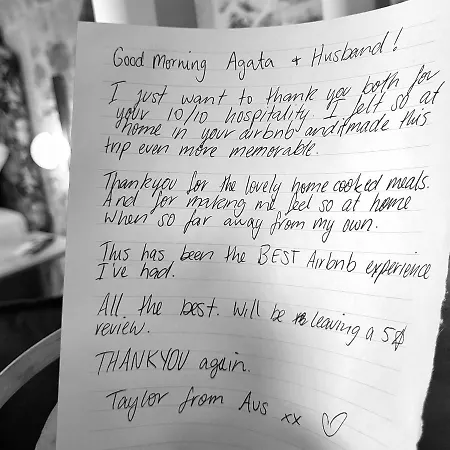 Good Morning Agata + Husband!
I just want to thank you both for
your 10/10 hospitality. I felt so at
home in your airbnb and it made this
trip even more memorable.
Thankyou for the lovely home cooked meals.
And for making me feel so at home
when so far away from my own.
This has been the BEST Airbnb experience
I've had.
All the best. Will be leaving a 5☆
review.
THANKYOU again.
Taylor from Aus xx ♡